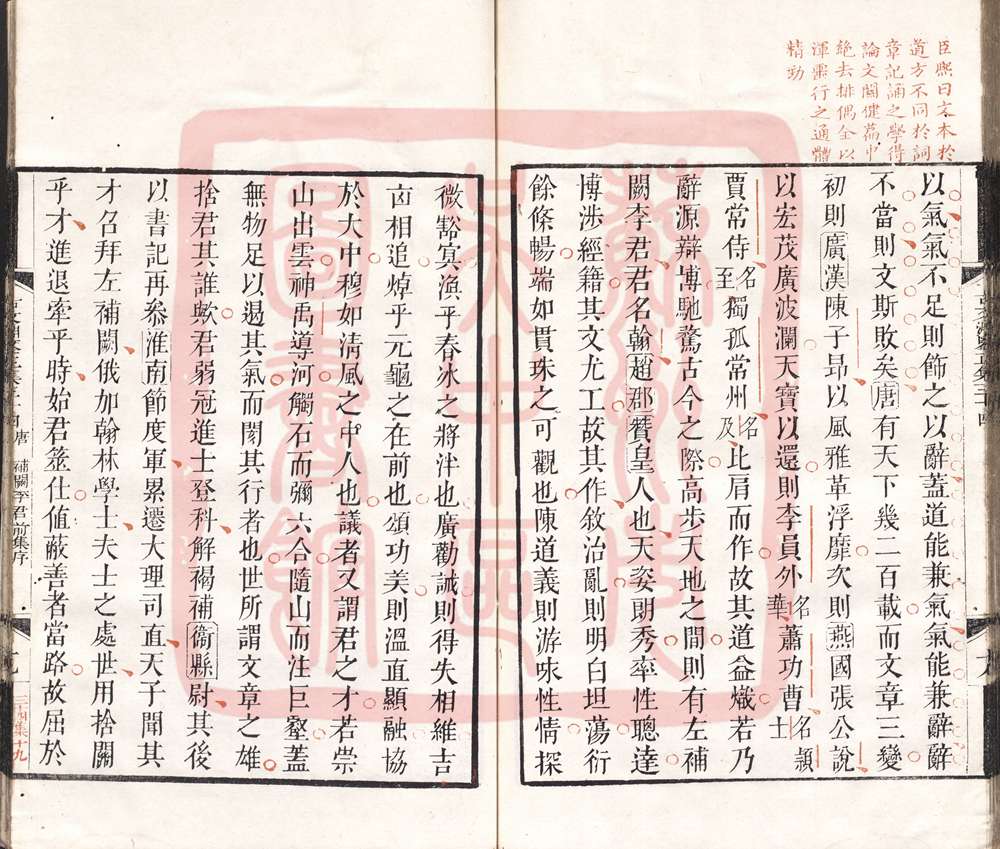 臣熙曰文本於
道方不同於詞
章記誦之學得
論文闢健為中
絶去排偶全以
渾灝行之通體
精勁
以氣氣不足則飾之以辭蓋道能兼氣氣能兼辭辭
不當則文斯敗矣唐有天下幾二百載而文章三變
初則廣漢陳子昻以風雅革浮靡次則燕國張公說
以宏茂廣波瀾天寶以還則李員外名華蕭功曹名穎士
賈常侍名至獨孤常州名及比肩而作故其道益熾若乃
辭源辯博馳騖古今之際高步天地之間則有左補
闕李君君名翰趙郡贊皇人也天姿朗秀率性聰達
博涉經籍其文尤工故其作敘治亂則明白坦蕩衍
餘條暢端如貫珠之可觀也陳道義則游咏性情探
微豁冥渙乎春冰之將泮也廣勸誡則得失相維吉
凶相追焯乎元龜之在前也頌功美則溫直顯融協
於大中穆如清風之中人也議者又謂君之才若崇
山出雲神禹導河觸石而彌六合隨山而注巨壑蓋
無物足以遏其氣而閡其行者也世所謂文章之雄
捨君其誰歟君弱冠進士登科解褐補衞縣尉其後
以書記再參淮南節度軍累遷大理司直天子聞其
才召拜左補闕俄加翰林學士夫士之處世用捨關
乎才進退牽乎時始君筮仕値蔽善者當路故屈於
唐 補闕李君前集序
三十四集十九